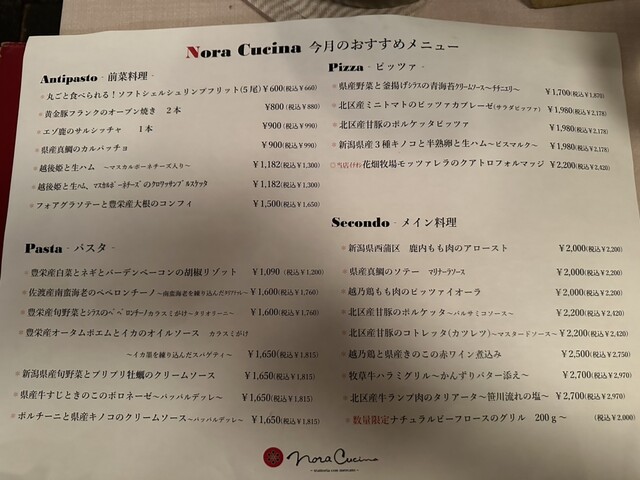 Nora Cucina 今月のおすすめメニュー
Antipasto - 前菜料理 -
丸ごと食べられる!ソフトシェルシュリンプフリット(5尾) ¥600(税込¥660)
黄金豚フランクのオーブン焼き 2本 ¥800(税込¥880)
エゾ鹿のサルシッチャ 1本 ¥900(税込¥990)
県産真鯛のカルパッチョ ¥900(税込¥990)
越後姫と生ハム ～マスカルポーネチーズ入り～ ¥1,182(税込¥1,300)
越後姫と生ハム、マスカルポーネチーズのクロワッサンブルスケッタ ¥1,182(税込¥1,300)
フォアグラソテーと豊栄産大根のコンフィ ¥1,500(税込¥1,650)
Pasta - パスタ -
豊栄産白菜とネギとバーデンベーコンの胡椒リゾット ¥1,090 (税込¥1,200)
佐渡産南蛮海老のペペロンチーノ～南蛮海老を練り込んだタリアテッレ～ ¥1,600(税込¥1,760)
豊栄産旬野菜とシラスのペペロンチーノカラスミがけ～タリオリーニ～ ¥1,600(税込¥1,760)
豊栄産オータムポエムとイカのオイルソース カラスミがけ
～イカ墨を練り込んだスパゲティ～ ¥1,650(税込¥1,815)
新潟県産旬野菜とプリプリ牡蠣のクリームソース ¥1,650(税込¥1,815)
県産牛すじときのこのボロネーゼ～パッパルデッレ～ ¥1,650(税込¥1,815)
ポルチーニと県産キノコのクリームソース～パッパルデッレ～ ¥1,650(税込¥1,815)
Pizza - ピッツァ -
県産野菜と釜揚げシラスの青海苔クリームソース～チチニエリ～ ¥1,700(税込¥1,870)
北区産ミニトマトのピッツァカプレーゼ(サラダピッツァ) ¥1,980(税込¥2,178)
北区産甘豚のポルケッタピッツァ ¥1,980(税込¥2,178)
新潟県産3種キノコと半熟卵と生ハム～ビスマルク～ ¥1,980(税込¥2,178)
当店イチオシ 花畑牧場モッツァレラのクアトロフォルマッジ ¥2,200(税込¥2,420)
Secondo - メイン料理
新潟県西蒲区 鹿内もも肉のアロースト ¥2,000(税込¥2,200)
県産真鯛のソテー マリナーラソース ¥2,000(税込¥2,200)
越乃鶏もも肉のピッツァイオーラ ¥2,000(税込¥2,200)
北区産甘豚のポルケッタ～バルサミコソース～ ¥2,200(税込¥2,420)
北区産甘豚のコトレッタ(カツレツ)～マスタードソース～ ¥2,200(税込¥2,420)
越乃鶏と県産きのこの赤ワイン煮込み ¥2,500(税込¥2,750)
牧草牛ハラミグリル～かんずりバター添え～ ¥2,700(税込¥2,970)
北区産牛ランプ肉のタリアータ～笹川流れの塩～ ¥2,700(税込¥2,970)
数量限定ナチュラルビーフロースのグリル 200g～ (税込¥2,000)
nora Cucina